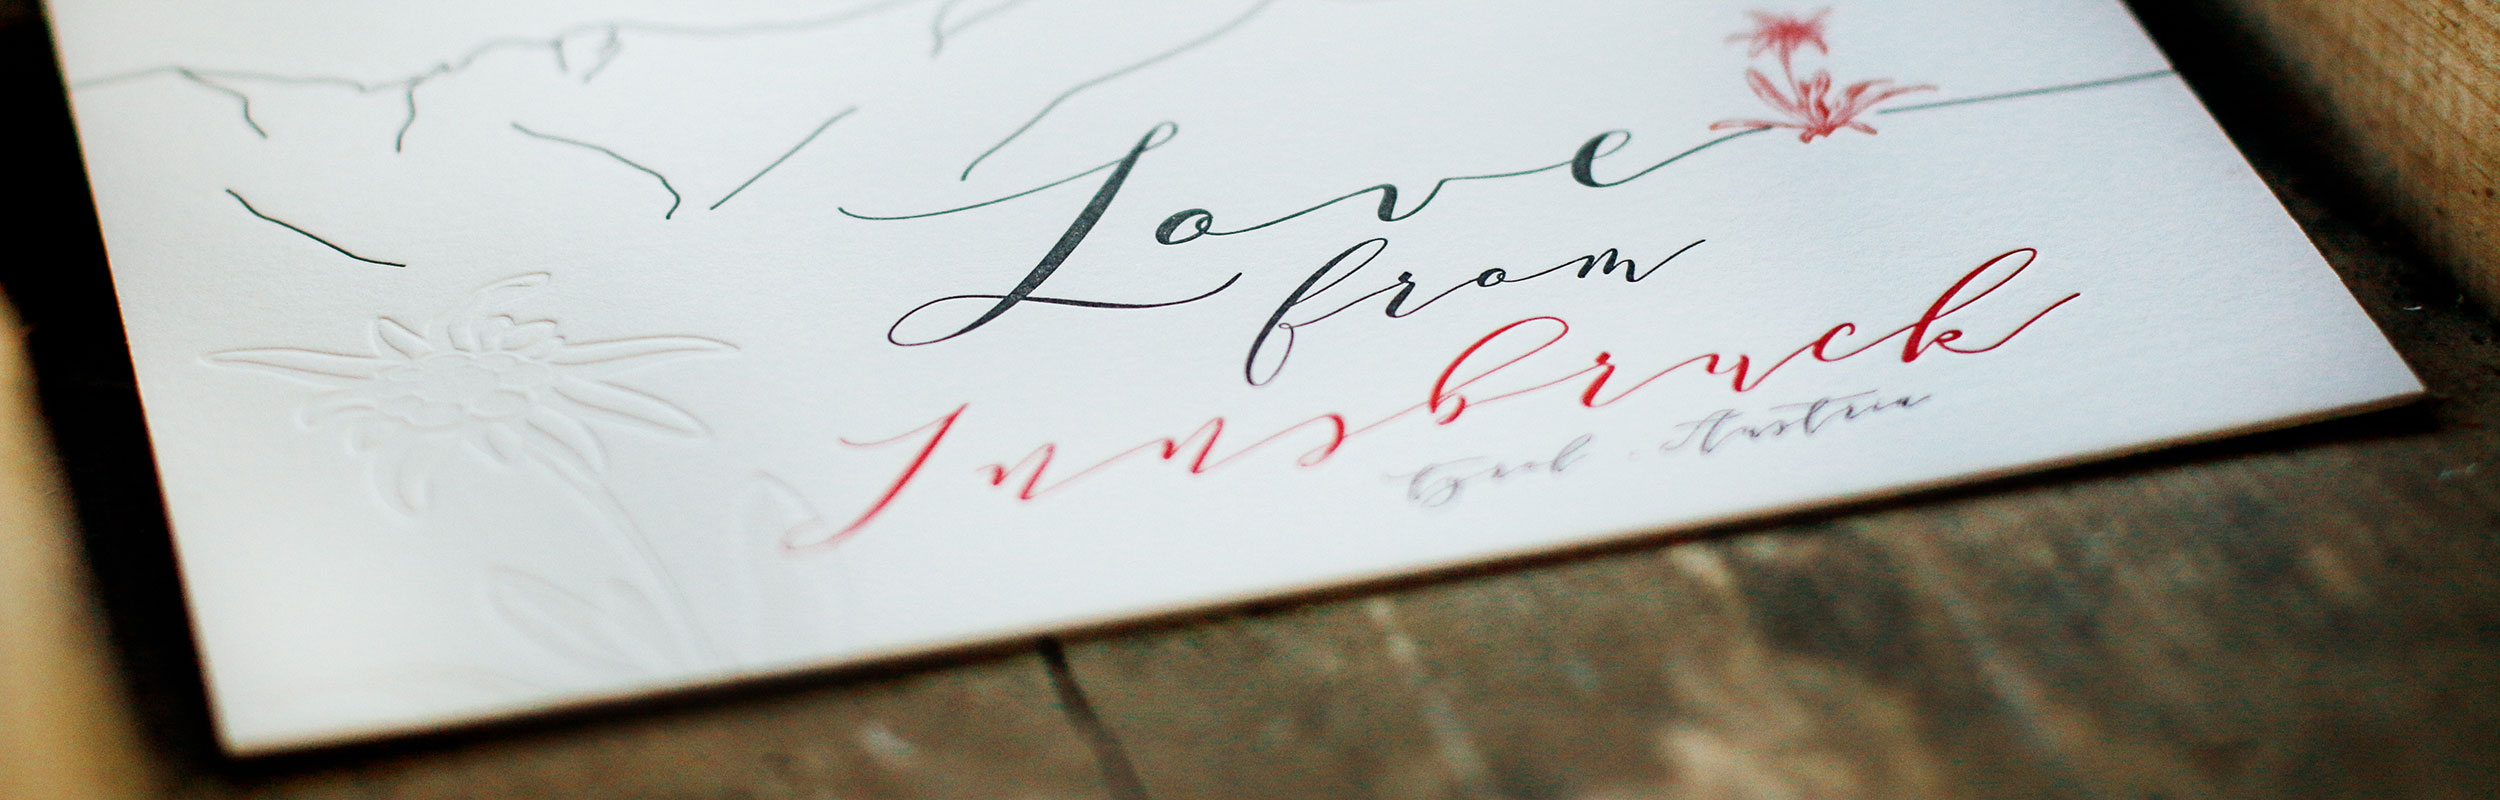 Love
from
Innsbruck
Tyrol . Austria